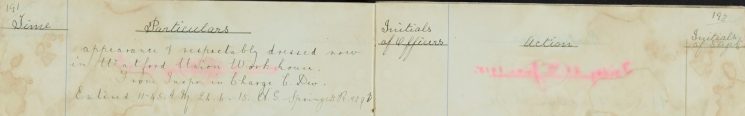 191
Time Particulars Initials of Officers Action 192 Initials of Supt
appearance & respectably dressed now
in Watford Union Workhouse.
Inspr in Charge C. Div.
Entered 11-45. 26. 6. 15. Springett